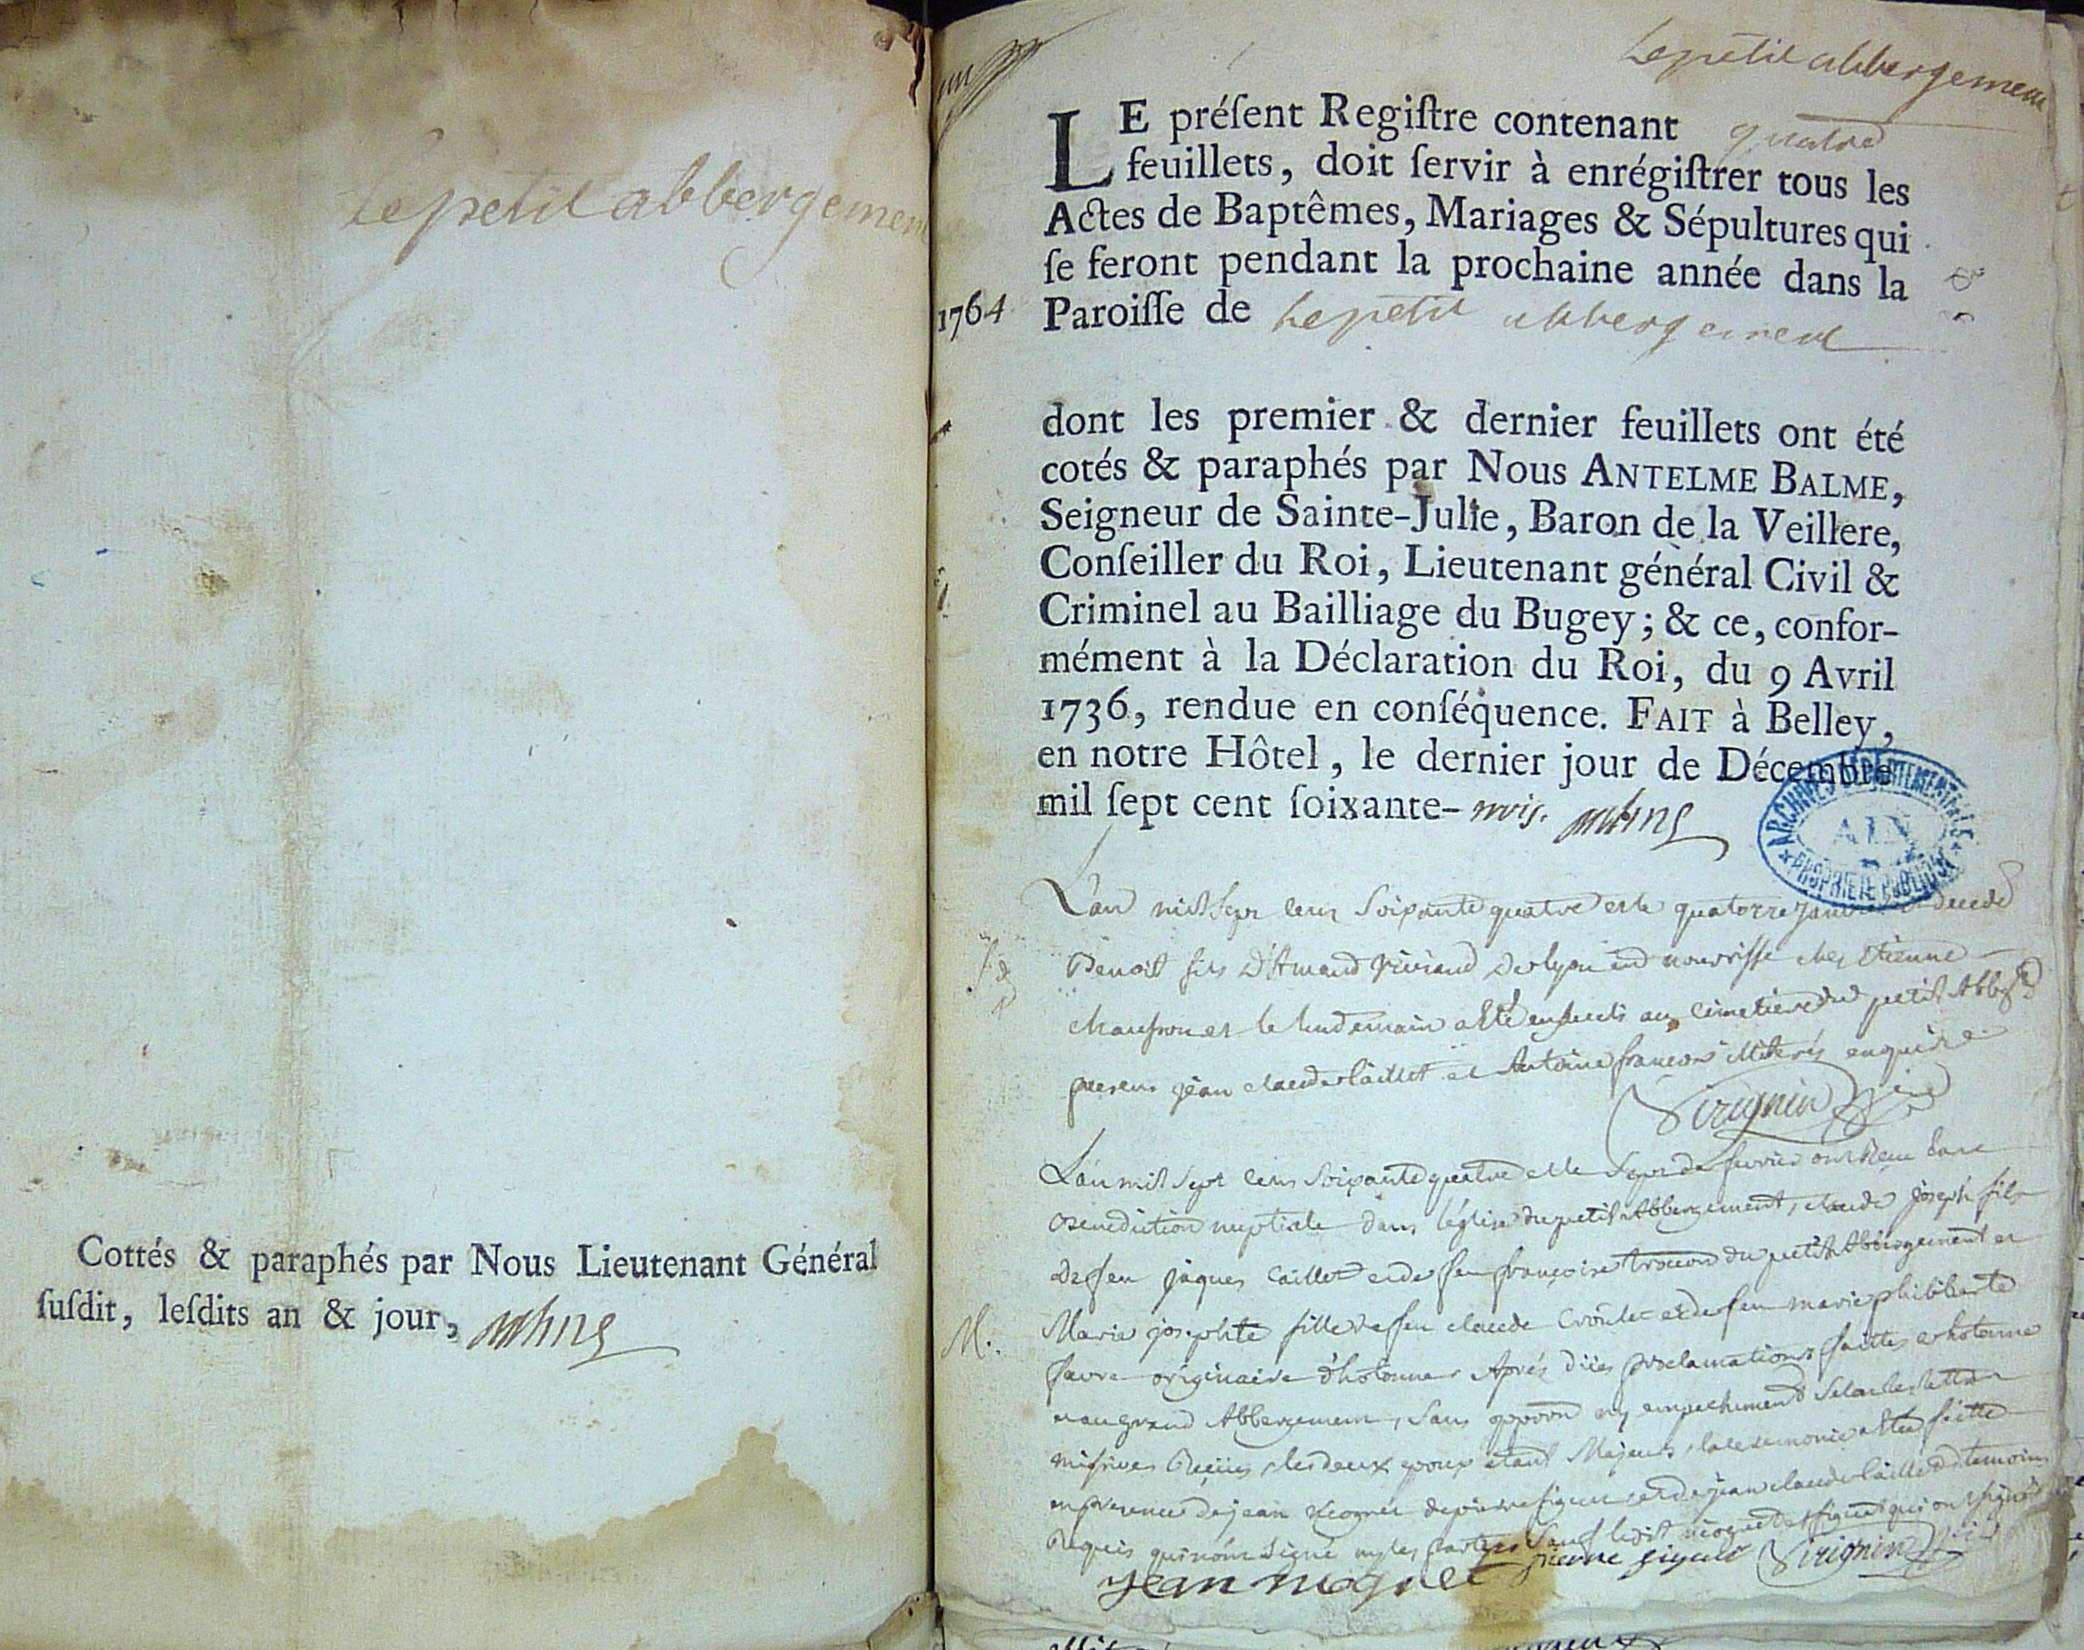 Le petit abbergement
Cottés & paraphés par Nous Lieutenant Général
ſuſdit, leſdits an & jour,
Le petit abbergement
LE préſent Regiſtre contenant quatre
feuillets, doit ſervir à enrégiſtrer tous les
Actes de Baptêmes, Mariages & Sépultures qui
ſe feront pendant la prochaine année dans la
1764
Paroiſſe de Le petit abbergement
dont les premier & dernier feuillets ont été
cotés & paraphés par Nous ANTELME BALME,
Seigneur de Sainte-Julie, Baron de la Veillere,
Conſeiller du Roi, Lieutenant général Civil &
Criminel au Bailliage du Bugey; & ce, confor-
mément à la Déclaration du Roi, du 9 Avril
1736, rendue en conſéquence. FAIT à Belley,
en notre Hôtel, le dernier jour de Décembre
mil ſept cent ſoixante-trois.
ARCHIVES DÉPARTEMENTALES
AIN
PROPRIÉTÉ PUBLIQUE
L'an mil sept cens soixante quatre et le quatorze janvier est decedé
Benoist fils d'Amand de lyon en nourrisse chez Etienne
et le lendemain a été enseveli au cimetiere du petit Abbergt
presens jean claude Caillet et Antoine françois enquis
Virignin
L'an mil sept cens soixante quatre et le sept de fevrier ont Reçu la
Benediction nuptiale dans l'église du petit Abbergement, claude joseph fils
de feu jaques Caillet et de feu françoise du petit Abbergement et
M.
Marie josephte fille de feu claude et de feu marie philiberte
favre originaire d'hotonne Aprés proclamations faittes a hotonne
et au grand Abbergement, sans oppoon ny empechement selon les lettres
missives Reçües, les deux epoux etant Majeurs, la ceremonie a été faitte
en presence de jean de pierre figuet et de jean claude Caillet temoins
Requis qui n'ont signé ny les parties sauf ledit et figuet qui ont signé
jean
pierre figuet
Virignin